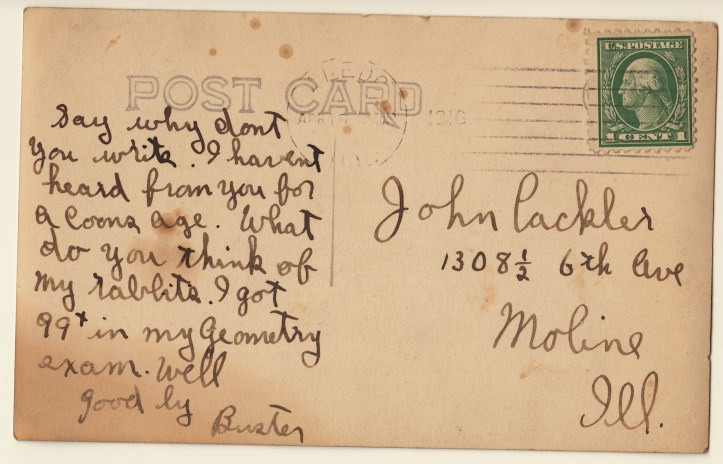 POST CARD
U.S. POSTAGE
1 CENT 1
1916
Say why dont
you write. I havent
heard from you for
a Coons age. What
do you think of
my rabbits. I got
99+ in my Geometry
exam. Well
Good by
Buster
John Cackler
1308½ 6th Ave
Moline
Ill.